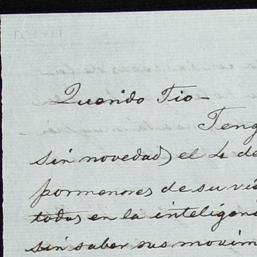 Querido Tio-
Teng
sin novedad el 4 de
pormenores de su vi
todas en la inteligenc
sin saber sus movim